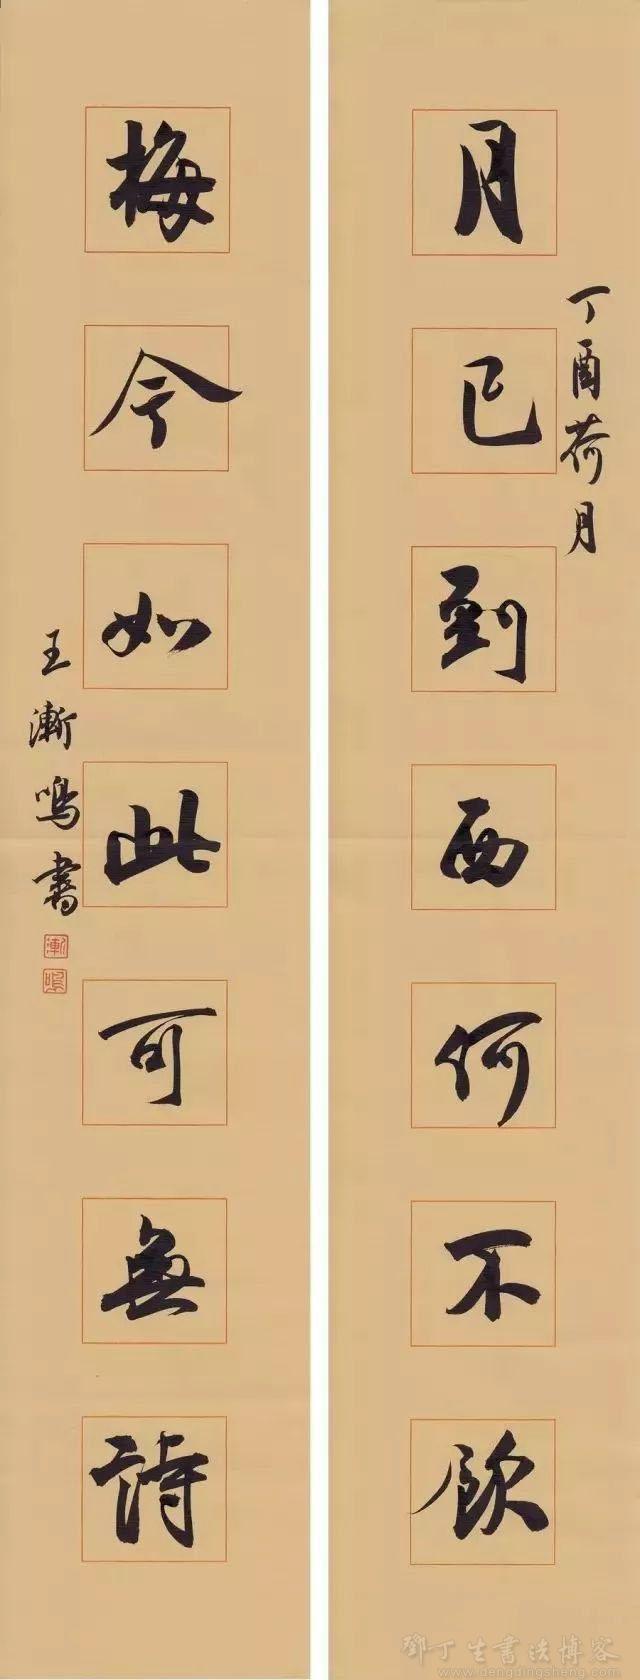 丁酉荷月
月已到西何不飲
梅今如此可無詩
王漸鳴書
漸
鳴
鄧丁生書法博客
www.dengdingsheng.com